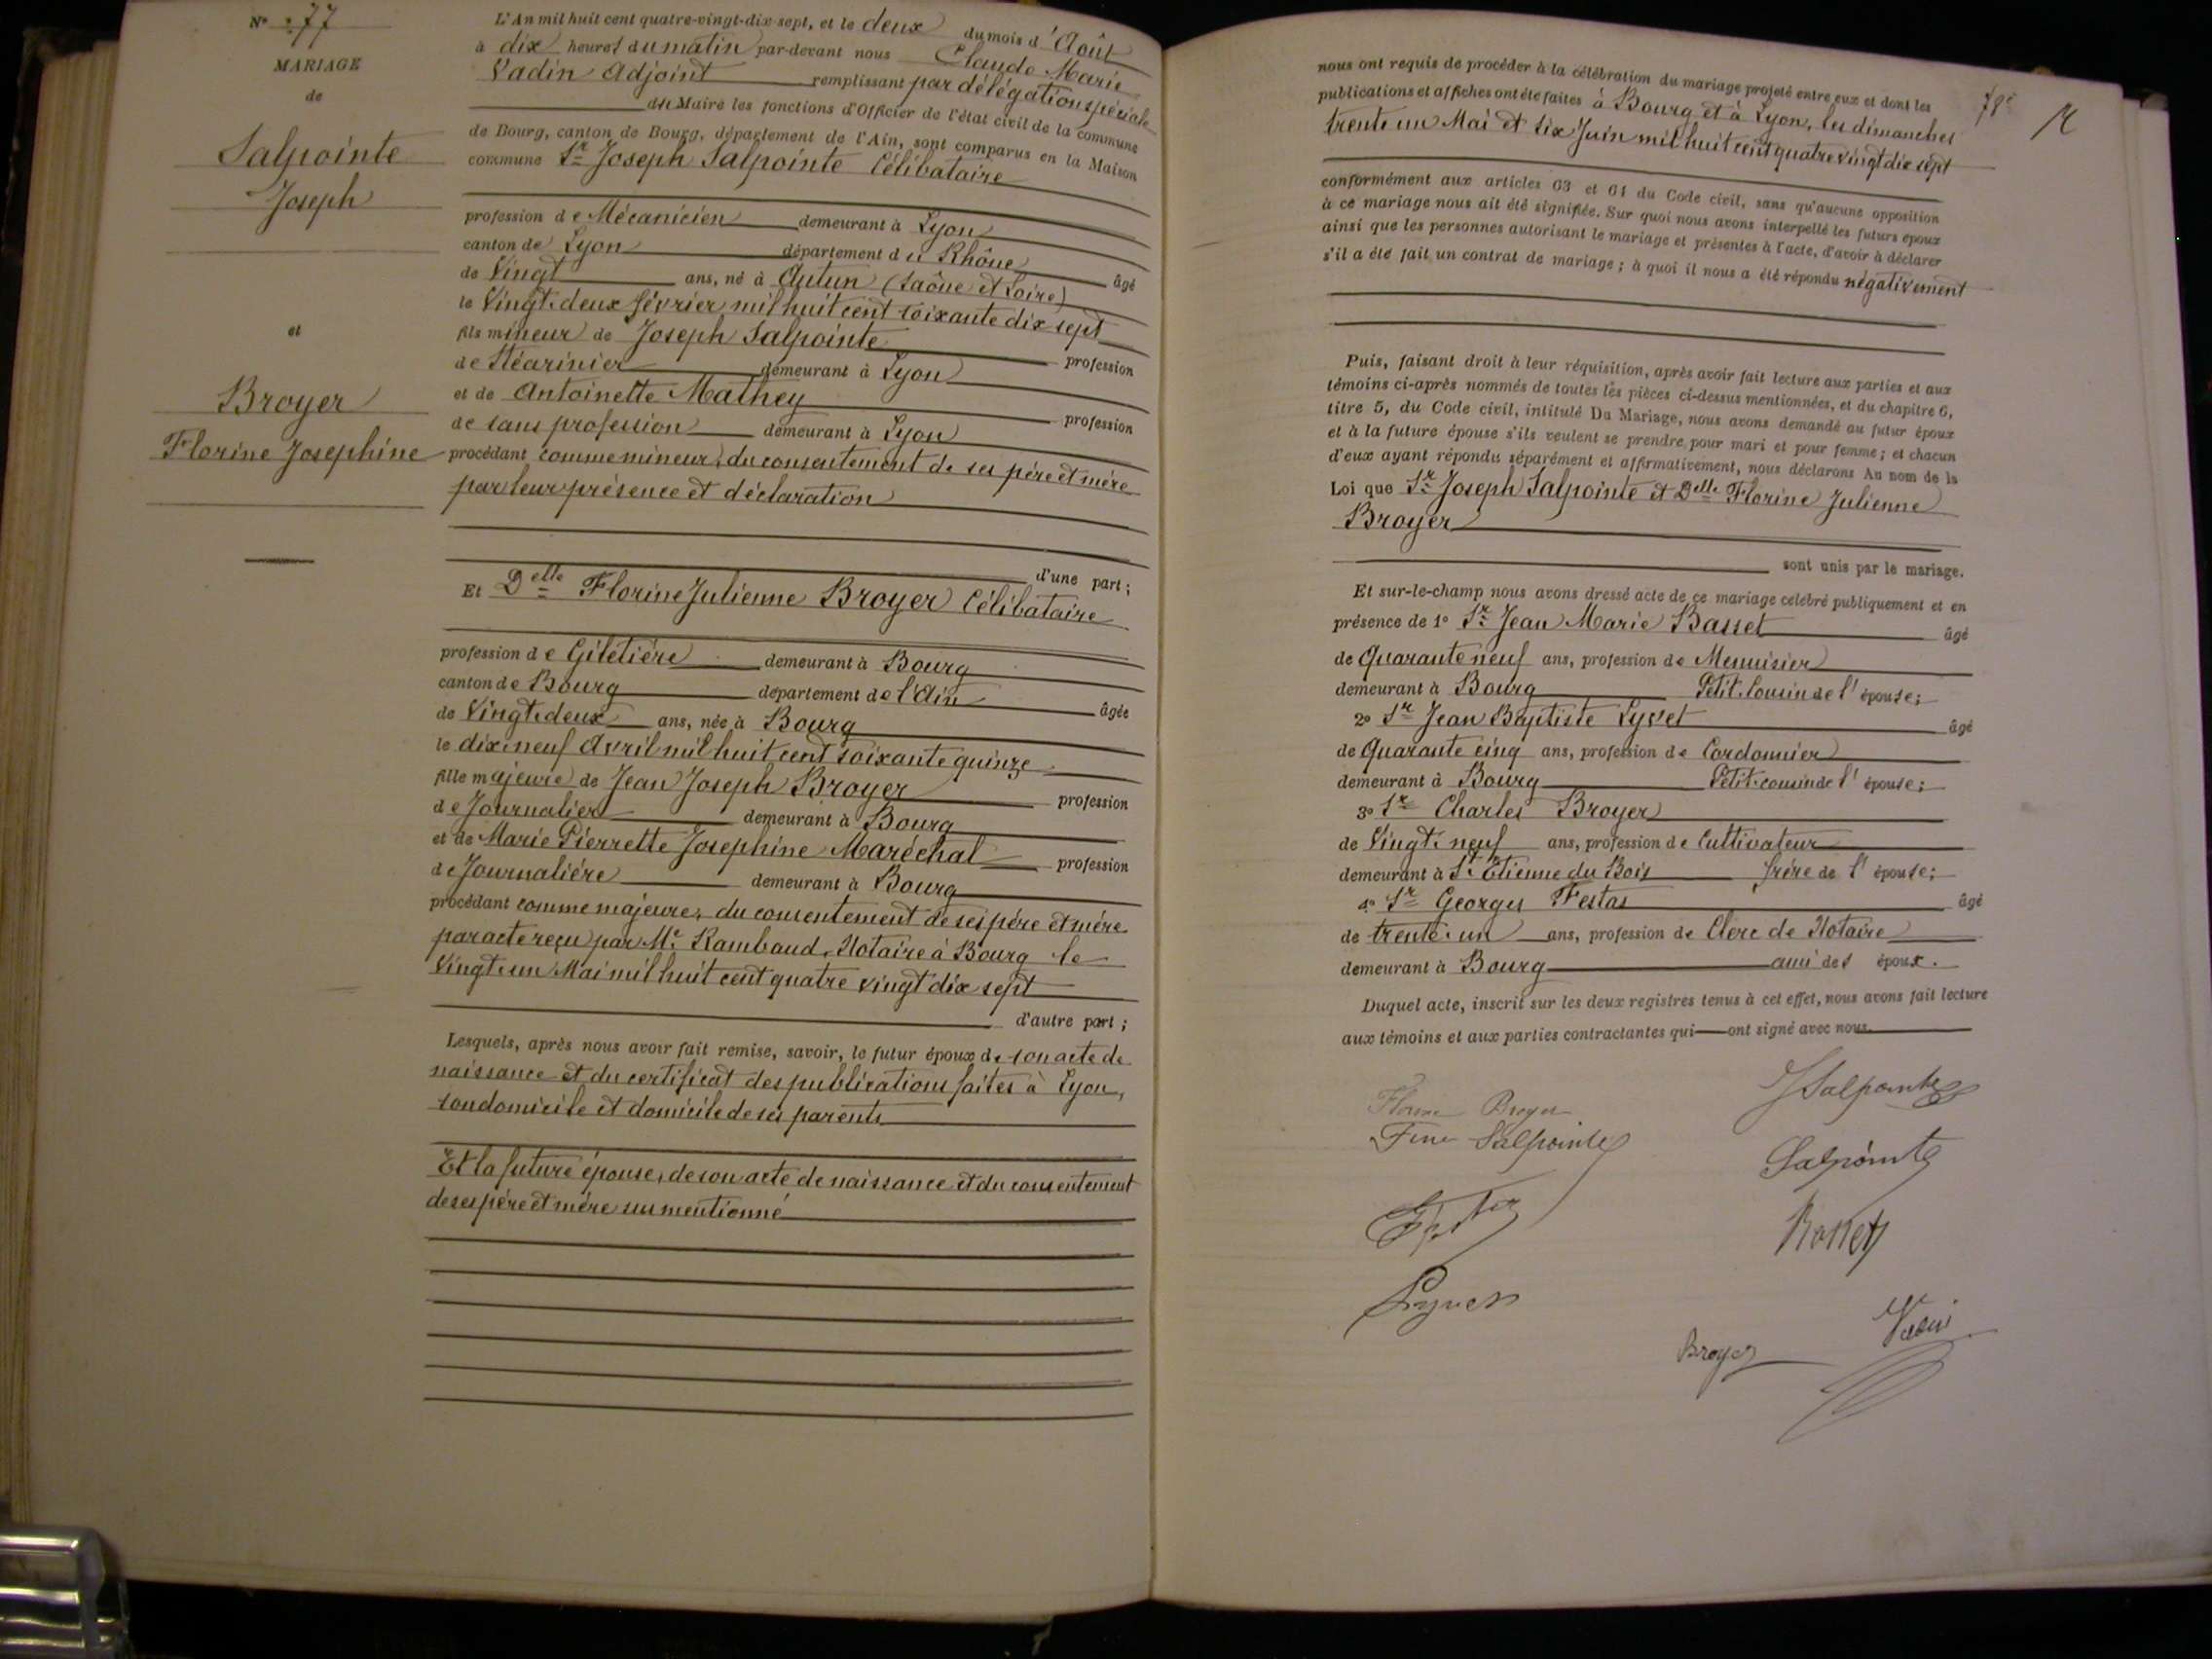 N° 77
MARIAGE
de
Salpointe
Joseph
et
Broyer
Florine Josephine
L'An mil huit cent quatre-vingt-dix-sept, et le deux du mois d'Août
à dix heures du matin par-devant nous Claude Marie
Vadin Adjoint remplissant par délégation spéciale
du Maire les fonctions d'Officier de l'état civil de la commune
de Bourg, canton de Bourg, département de l'Ain, sont comparus en la Maison
commune Sr Joseph Salpointe Célibataire
profession de Mécanicien demeurant à Lyon
canton de Lyon département du Rhône âgé
de Vingt ans, né à Autun (Saône et Loire)
le Vingt-deux février mil huit cent soixante dix sept
fils mineur de Joseph Salpointe profession
de Stéarinier demeurant à Lyon
et de Antoinette Mathey profession
de sans profession demeurant à Lyon
procédant comme mineur, du consentement de ses père et mère
par leur présence et déclaration
d'une part ;
Et Delle Florine Julienne Broyer Célibataire
profession de Giletière demeurant à Bourg
canton de Bourg département de l'Ain âgée
de Vingt-deux ans, née à Bourg
le dix-neuf Avril mil huit cent soixante quinze
fille majeure de Jean Joseph Broyer profession
de Journalier demeurant à Bourg
et de Marie Pierrette Josephine Maréchal profession
de Journalière demeurant à Bourg
procédant comme majeure, du consentement de ses père et mère
par acte reçu par Me Rambaud, Notaire à Bourg le
Vingt-un Mai mil huit cent quatre vingt dix sept
d'autre part ;
Lesquels, après nous avoir fait remise, savoir, le futur époux de son acte de
naissance et du certificat des publications faites à Lyon,
son domicile et domicile de ses parents
Et la future épouse, de son acte de naissance et du consentement
de ses père et mère susmentionné
78e
nous ont requis de procéder à la célébration du mariage projeté entre eux et dont les
publications et affiches ont été faites à Bourg et à Lyon, les dimanches
trente un Mai et six Juin mil huit cent quatre vingt dix sept
conformément aux articles 63 et 64 du Code civil, sans qu'aucune opposition
à ce mariage nous ait été signifiée. Sur quoi nous avons interpellé les futurs époux
ainsi que les personnes autorisant le mariage et présentes à l'acte, d'avoir à déclarer
s'il a été fait un contrat de mariage ; à quoi il nous a été répondu négativement
Puis, faisant droit à leur réquisition, après avoir fait lecture aux parties et aux
témoins ci-après nommés de toutes les pièces ci-dessus mentionnées, et du chapitre 6,
titre 5, du Code civil, intitulé Du Mariage, nous avons demandé au futur époux
et à la future épouse s'ils veulent se prendre pour mari et pour femme ; et chacun
d'eux ayant répondu séparément et affirmativement, nous déclarons Au nom de la
Loi que Sr Joseph Salpointe et Delle Florine Julienne
Broyer
sont unis par le mariage.
Et sur-le-champ nous avons dressé acte de ce mariage célébré publiquement et en
présence de 1° Sr Jean Marie Basset âgé
de Quarante neuf ans, profession de Menuisier
demeurant à Bourg Petit-Cousin de l'épouse ;
2° Sr Jean Baptiste Lyvet âgé
de Quarante cinq ans, profession de Cordonnier
demeurant à Bourg Petit-cousin de l'épouse ;
3° Sr Charles Broyer
de Vingt-neuf ans, profession de Cultivateur
demeurant à St Etienne du Bois frère de l'épouse ;
4° Sr Georges Festas âgé
de trente-un ans, profession de Clerc de Notaire
demeurant à Bourg ami des époux.
Duquel acte, inscrit sur les deux registres tenus à cet effet, nous avons fait lecture
aux témoins et aux parties contractantes qui ont signé avec nous
Florine Broyer
J Salpointe
Salpointe
Salpointe
Basset
Broyer